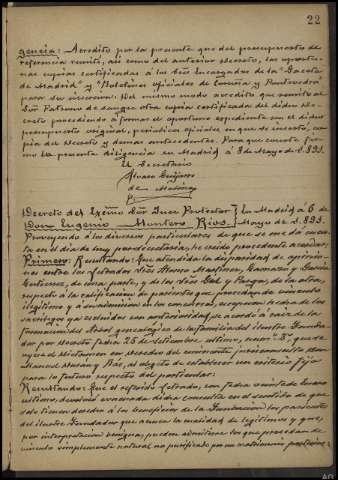 22
gencia: Acredito por la presente que del presupuesto de
referencia remití, así como del anterior decreto, las oportu-
nas copias certificadas a los Sres Encargados de la "Gaceta
de Madrid" y "Boletines oficiales de Coruña y Pontevedra"
para su inserción. Del mismo modo acredito que remito al
Sr. Patrono de sangre otra copia certificada del dicho De-
creto procediendo a formar el oportuno expediente con el dicho
presupuesto original, periódicos oficiales en que se inserte, co-
pia del Decreto y demás antecedentes. Para que conste fir-
mo la presente diligencia en Madrid a 3 de Mayo de 1.893.
El Secretario
Alvaro
de
Decreto del Excmo Sr. Juez Protector En Madrid a 6 de
Don Eugenio Montero Rios. Mayo de 1.893.
Proveyendo a los diversos particulares de que se me da cuen-
ta en el día de hoy por Secretaría, he creído procedente acordar;
Primero: Resultando: Que atendida la disparidad de opinio-
nes entre los letrados Sres Alonso Martínez, Camazo y García
Gutierrez, de una parte, y de los Sres Gil y Vargas, de la otra,
respecto a la calificación de parientes que, procediendo de vínculo
ilegítimo y a su admisión en los concursos, ocuparon lo de los
sacrílegos ya excluidos con anterioridad, se acordó a raíz de la
formación del Arbol genealógico de la familia del ilustre Funda-
dor por Decreto fecha 25 de Setiembre último, número 3º, que se
oyese el dictamen en Derecho del eminente jurisconsulto Don
Manuel Duran y Bas, al objeto de establecer un criterio fijo
para lo futuro respecto del particular.
Resultando: Que el referido letrado, con fecha veinte de Enero
último, devolvió evacuada dicha consulta en el sentido de que
solo tienen derecho a los beneficios de la Fundación los parientes
del ilustre Fundador que a la calidad de legítimos y que,
por interpretación benigna, pueden admitirse los que procedan de
vínculo simplemente natural no purificado por un matrimonio posterior,